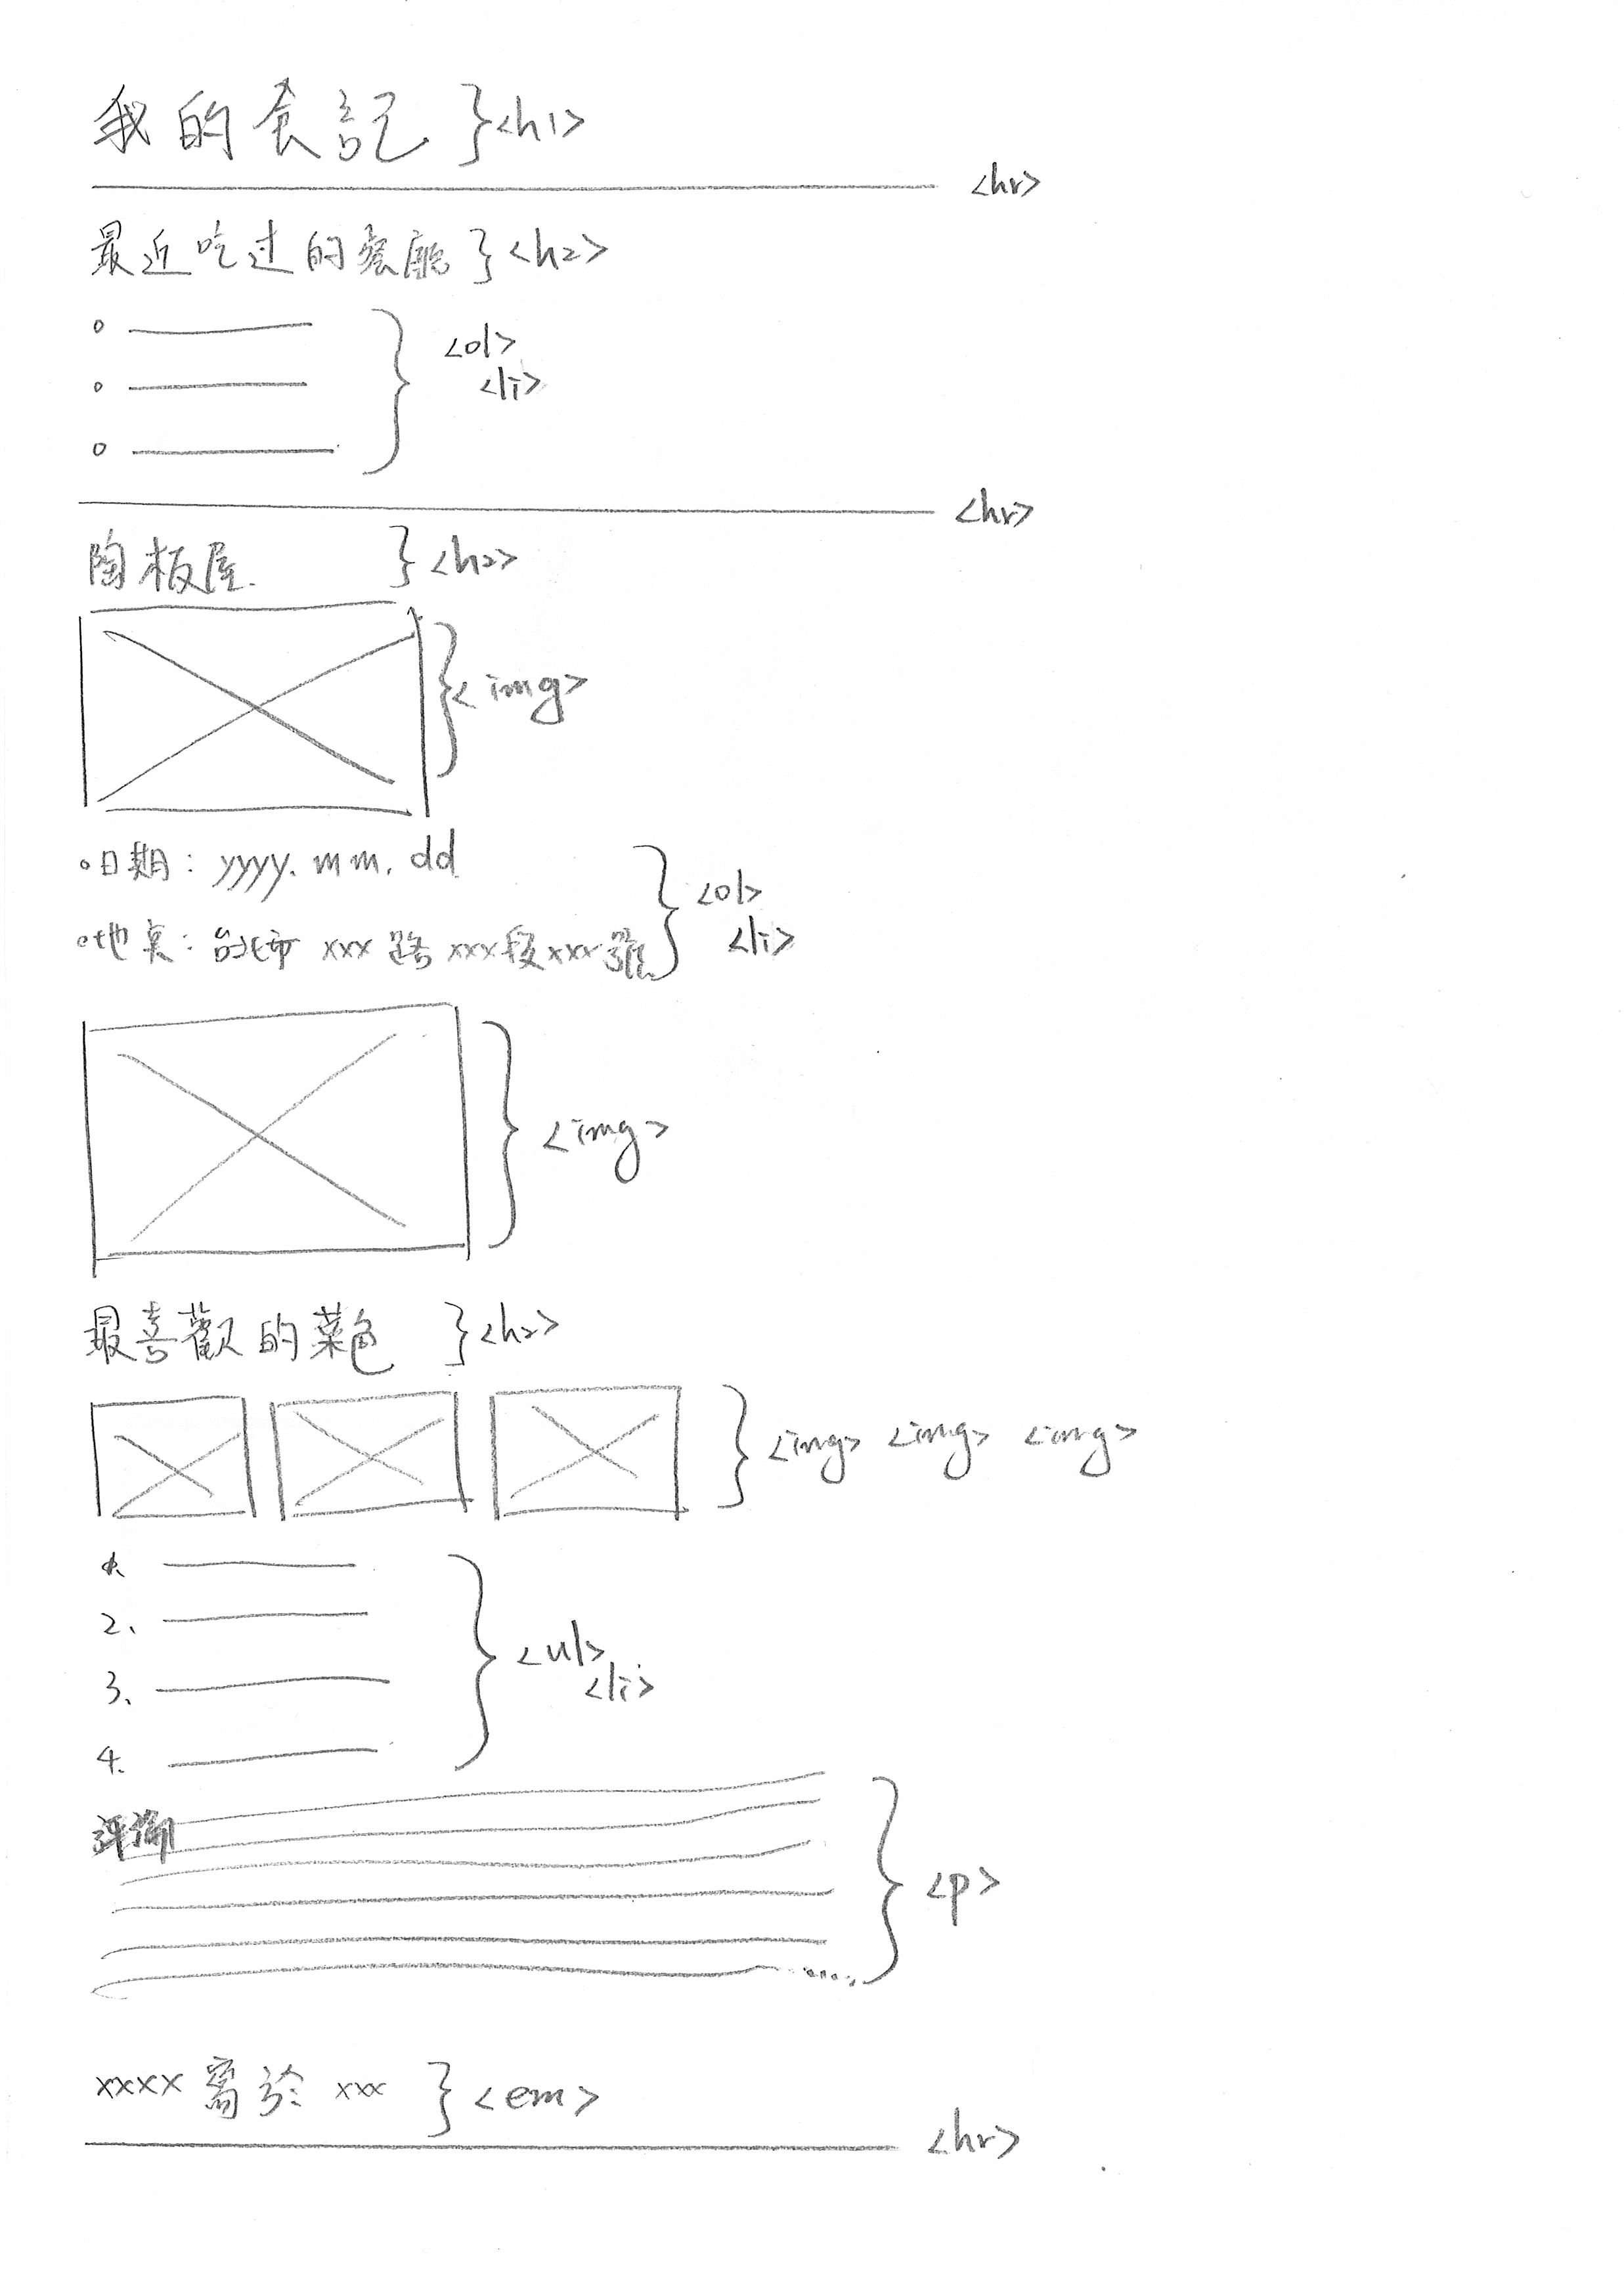 我的食記 }<h1>
<hr>
最近吃过的餐廳 }<h2>
<ol>
<li>
<hr>
陶板屋. }<h2>
<img>
日期: yyyy. mm. dd
<ol>
地點: 台北市 xxx 路 xxx段xxx號
<li>
<img>
最喜歡的菜色 }<h2>
<img> <img> <img>
1.
2.
3.
4.
<ul>
<li>
<p>
xxxx 寫於 xxx }<em>
<hr>